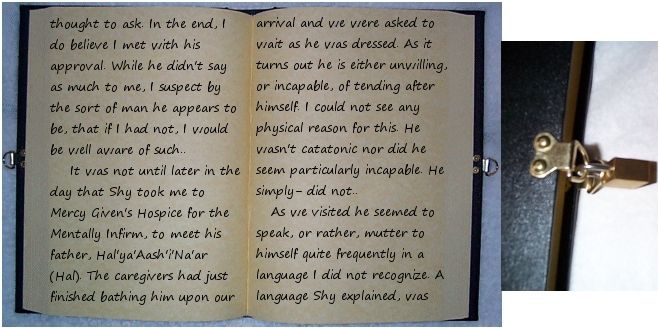 thought to ask. In the end, I
do believe I met with his
approval. While he didn't say
as much to me, I suspect by
the sort of man he appears to
be, that if I had not, I would
be well aware of such..
It was not until later in the
day that Shy took me to
Mercy Given's Hospice for the
Mentally Infirm, to meet his
father, Hal'ya'Aash'i'Na'ar
(Hal). The caregivers had just
finished bathing him upon our
arrival and we were asked to
wait as he was dressed. As it
turns out he is either unwilling,
or incapable, of tending after
himself. I could not see any
physical reason for this. He
wasn't catatonic nor did he
seem particularly incapable. He
simply- did not..
As we visited he seemed to
speak, or rather, mutter to
himself quite frequently in a
language I did not recognize. A
language Shy explained, was